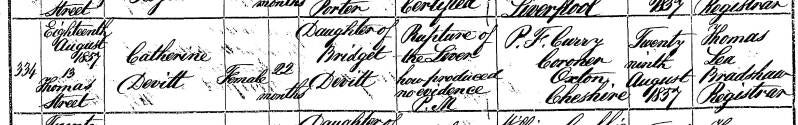 Street months Porter Certified Liverpool 1857 Registrar
334
Eighteenth
August
1857
13
Thomas
Street
Catherine
Devitt
Female
22
months
Daughter of
Bridget
Devitt
Rupture of
the Liver
how produced
no evidence
P.M
P. F. Curry
Coroner
Oxton
Cheshire
Twenty
ninth
August
1857
Thomas
Lea
Bradshaw
Registrar
Daughter of